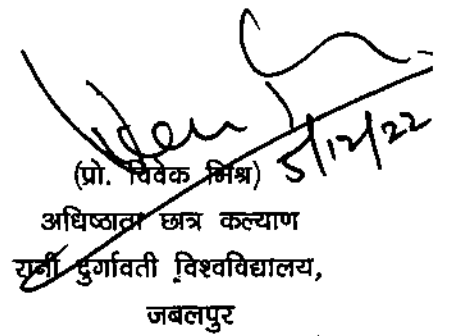 5/12/22
(प्रो. विवेक मिश्र)
अधिष्ठाता छात्र कल्याण
रानी दुर्गावती विश्वविद्यालय,
जबलपुर